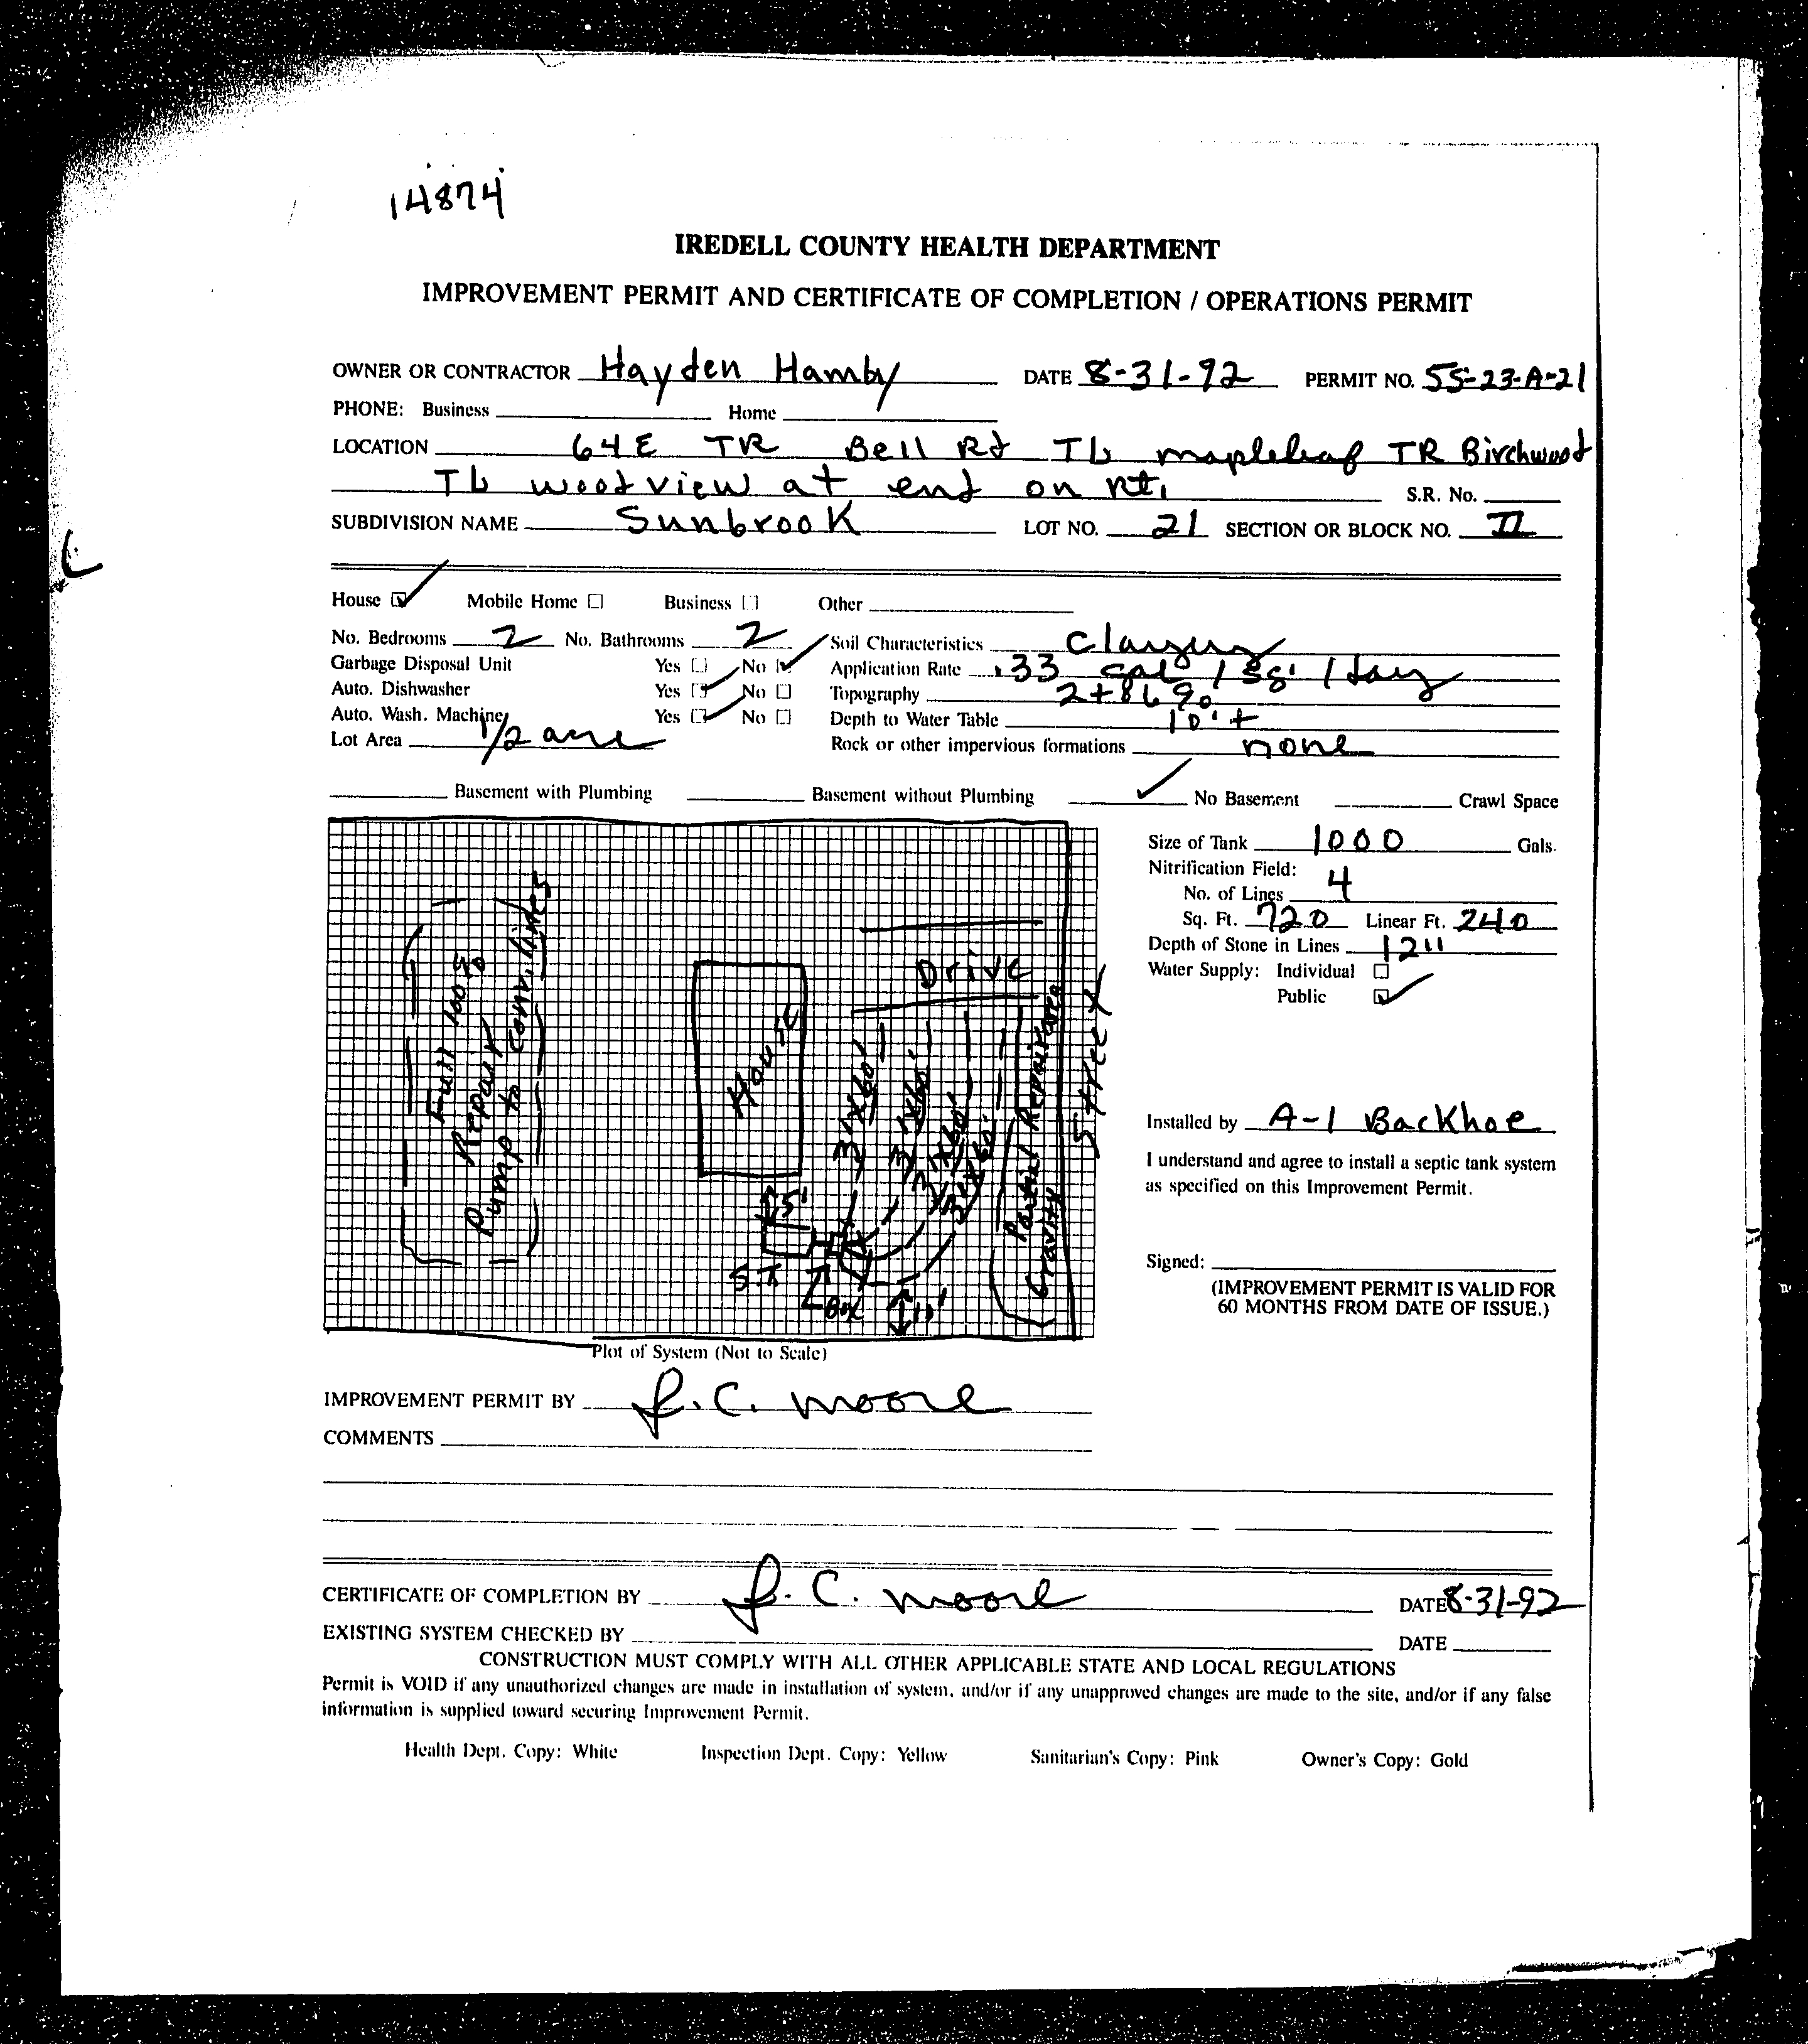 14874
IREDELL COUNTY HEALTH DEPARTMENT
IMPROVEMENT PERMIT AND CERTIFICATE OF COMPLETION / OPERATIONS PERMIT
OWNER OR CONTRACTOR Hayden Hamby DATE 8-31-92 PERMIT NO. 55-23-A-21
PHONE: Business Home
LOCATION 64E TR Bell Rd TL mapleleaf TR Birchwood
TL woodview at end on Rt.
S.R. No.
SUBDIVISION NAME Sunbrook LOT NO. 21 SECTION OR BLOCK NO. II
House Mobile Home Business Other
No. Bedrooms 2 No. Bathrooms 2 Soil Characteristics Clayey
Garbage Disposal Unit Yes No Application Rate .33 gal / sq' / day
Auto. Dishwasher Yes No Topography 2 to 6%
Auto. Wash. Machine Yes No Depth to Water Table 10'+
Lot Area 1/2 acre Rock or other impervious formations none
Basement with Plumbing Basement without Plumbing No Basement Crawl Space
Size of Tank 1000 Gals.
Nitrification Field:
No. of Lines 4
Sq. Ft. 720 Linear Ft. 240
Depth of Stone in Lines 12"
Water Supply: Individual
Public
Full 100%
Repair
Pump to conv. lines
House
Drive
3'x60'
3'x60'
3'x60'
3'x60'
Partial Repair Area
Gravity
Street
5'
S.T
Box
11'
Installed by A-1 Backhoe
I understand and agree to install a septic tank system
as specified on this Improvement Permit.
Signed:
(IMPROVEMENT PERMIT IS VALID FOR
60 MONTHS FROM DATE OF ISSUE.)
Plot of System (Not to Scale)
IMPROVEMENT PERMIT BY J. C. Moore
COMMENTS
CERTIFICATE OF COMPLETION BY J. C. Moore DATE 8-31-92
EXISTING SYSTEM CHECKED BY DATE
CONSTRUCTION MUST COMPLY WITH ALL OTHER APPLICABLE STATE AND LOCAL REGULATIONS
Permit is VOID if any unauthorized changes are made in installation of system, and/or if any unapproved changes are made to the site, and/or if any false
information is supplied toward securing Improvement Permit.
Health Dept. Copy: White Inspection Dept. Copy: Yellow Sanitarian's Copy: Pink Owner's Copy: Gold